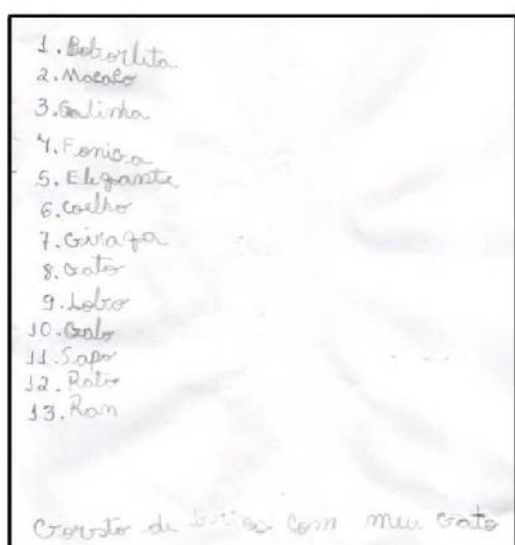 1. Boborlita
2. Macaco
3. Galinha
4. Fonica
5. Elegante
6. Coelho
7. Girafa
8. Gato
9. Lobo
10. Galo
11. Sapo
12. Rato
13. Ran
Gorsto de com meu Gato